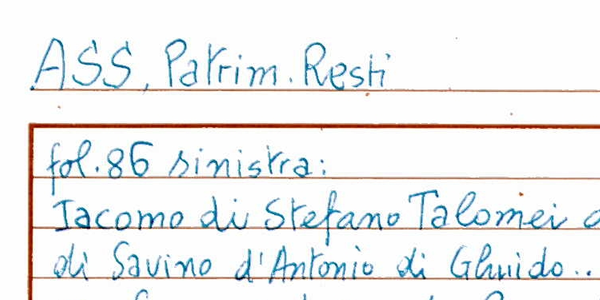 ASS, Patrim. Resti
fol. 86 sinistra:
Iacomo di Stefano Talomei
di Savino d'Antonio di Ghuido..